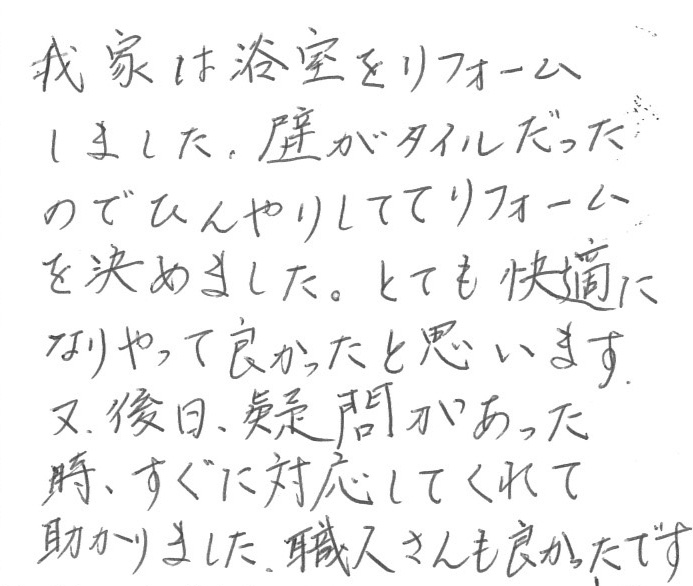 我家は浴室をリフォーム
しました。壁がタイルだった
のでひんやりしててリフォーム
を決めました。とても快適に
なりやって良かったと思います.
又、後日、疑問があった
時、すぐに対応してくれて
助かりました。職人さんも良かったです.